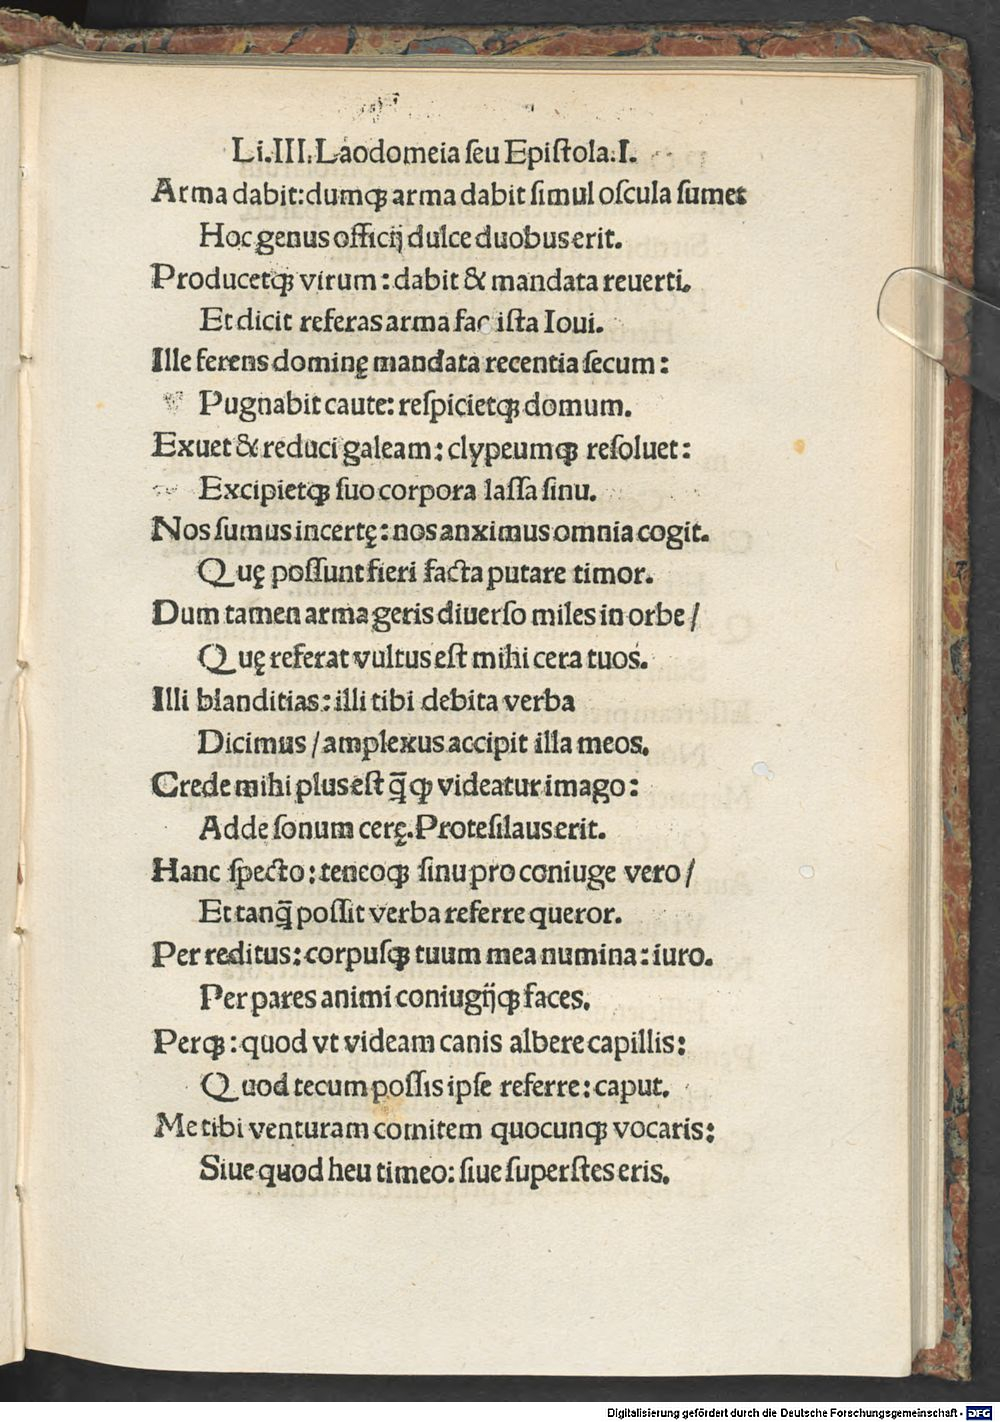 Li.III.Laodomeia ſeu Epiſtola.I.
Arma dabit:dumqꝫ arma dabit ſimul oſcula ſumet
Hoc genus officij dulce duobus erit.
Producetqꝫ virum: dabit & mandata reuerti.
Et dicit referas arma fac iſta Ioui.
Ille ferens dominę mandata recentia ſecum:
Pugnabit caute: reſpicietqꝫ domum.
Exuet & reduci galeam: clypeumqꝫ reſoluet:
Excipietqꝫ ſuo corpora laſſa ſinu.
Nos ſumus incertę: nos anximus omnia cogit.
Quę poſſunt fieri facta putare timor.
Dum tamen arma geris diuerſo miles in orbe /
Quę referat vultus eſt mihi cera tuos.
Illi blanditias: illi tibi debita verba
Dicimus / amplexus accipit illa meos.
Crede mihi plus eſt q̄ꝫ videatur imago:
Adde ſonum cerę. Proteſilaus erit.
Hanc ſpecto: teneoqꝫ ſinu pro coniuge vero /
Et tanq̄ poſſit verba referre queror.
Per reditus: corpuſqꝫ tuum mea numina: iuro.
Per pares animi coniugijqꝫ faces.
Perqꝫ: quod vt videam canis albere capillis:
Quod tecum poſſis ipſe referre: caput.
Me tibi venturam comitem quocunqꝫ vocaris:
Siue quod heu timeo: ſiue ſuperſtes eris.
Digitalisierung gefördert durch die Deutsche Forschungsgemeinschaft - DFG